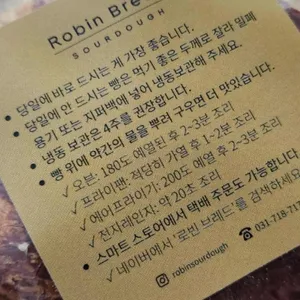 Robin Bre
SOURDOUGH
• 당일에 바로 드시는 게 가장 좋습니다.
• 당일에 안 드시는 빵은 먹기 좋은 두께로 잘라 밀폐
용기 또는 지퍼백에 넣어 냉동보관해 주세요.
• 냉동 보관은 4주를 권장합니다.
• 빵 위에 약간의 물을 뿌려 구우면 더 맛있습니다.
✓ 오븐: 180도 예열된 후 2-3분 조리
✓ 프라이팬: 적당히 가열 후 1-2분 조리
✓ 에어프라이기: 200도 예열 후 2-3분 조리
✓ 전자레인지: 약 20초 조리
• 스마트 스토어에서 택배 주문도 가능합니다.
✓ 네이버에서 '로빈 브레드'를 검색하세요
robinsourdough
031-718-717